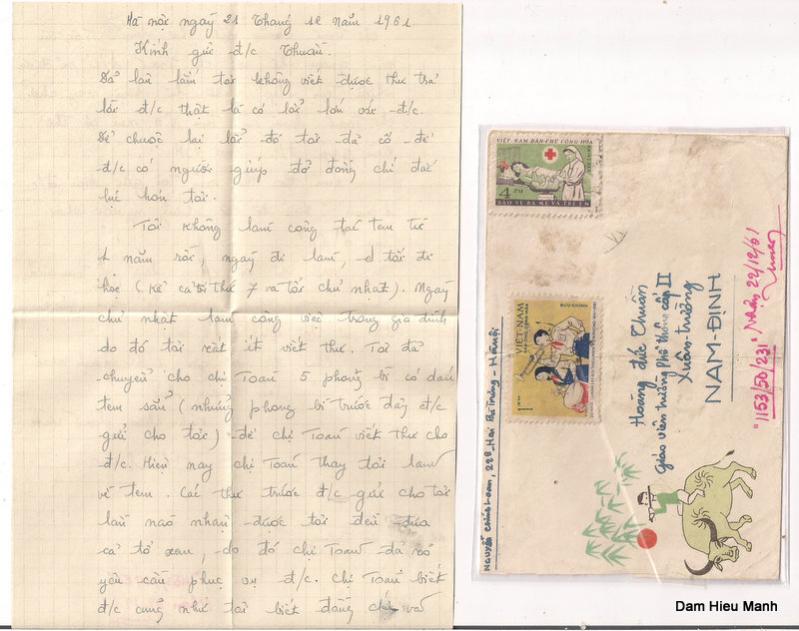 Hà nội ngày 21 Tháng 12 năm 1961
Kính gửi đ/c Thuần.
lần tôi không viết được thư trả
lời đ/c thật là có lỗi lớn với đ/c.
Để chuộc lại lỗi đó tôi đã cố để
đ/c có người giúp đỡ đồng chí đắc
lực hơn tôi.
Tôi không làm công tác tem từ
1 năm rồi, ngày đi làm, tối đi
học (kể cả thứ 7 và tối chủ nhật). Ngày
chủ nhật làm công việc trong gia đình
do đó tôi rất ít viết thư. Tôi đã
chuyển cho chị Toàn 5 phong bì có dán
tem sẵn (những phong bì trước đây đ/c
gửi cho tôi) để chị Toàn viết thư cho
đ/c. Hiện nay chị Toàn thay tôi làm
về tem. Các thư trước đ/c gửi cho tôi
lần nào nhận được tôi đều đưa
cả tổ xem, do đó chị Toàn đã có
yêu cầu phục vụ đ/c. Chị Toàn biết
đ/c cũng như tôi biết đồng chí và
VIỆT-NAM DÂN-CHỦ CỘNG-HÒA
4 XU
BẢO VỆ BÀ MẸ VÀ TRẺ EM
BƯU CHÍNH
VIỆT-NAM
DÂN CHỦ CỘNG HÒA
1
Nguyễn Chính Lam, 22 Hai Bà Trưng - Hà nội
Hoàng đức Thuần
Giáo viên trường Phổ thông cấp II
Xuân-trường
NAM-ĐỊNH
"1153/50/231" Nhận 22/12/61
Dam Hieu Manh